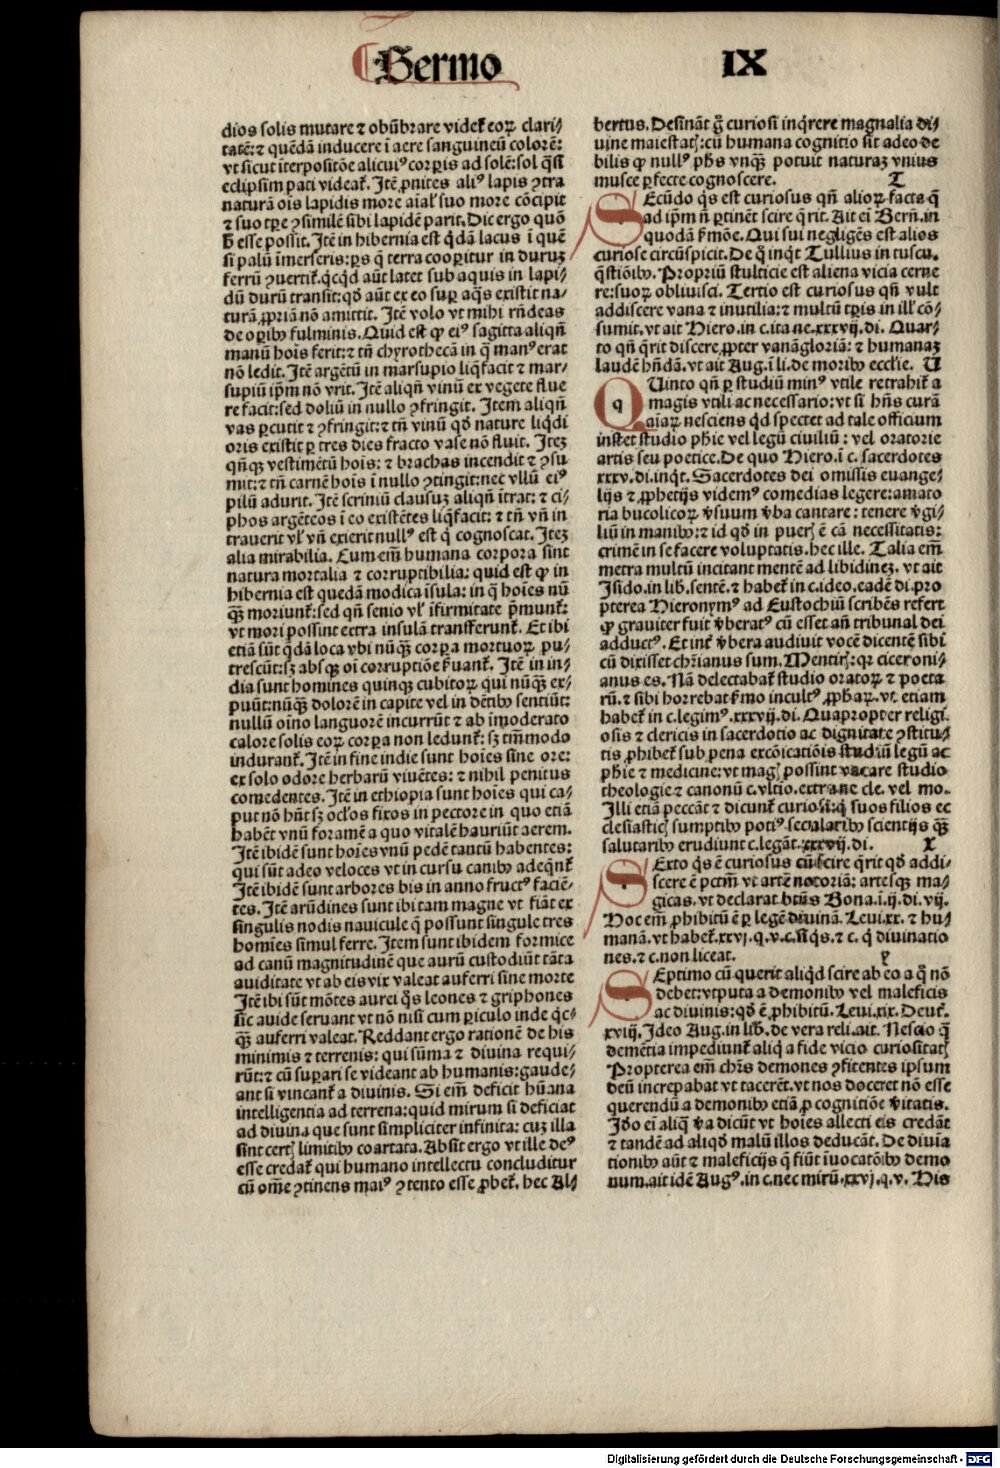 Sermo IX
dios solis mutare ⁊ obũbrare videt̃ eoꝝ clari⸗
tatẽ: ⁊ quẽdã inducere ĩ aere sanguineũ colorẽ:
vt sicut ĩterpositõe alicuiꝰ corꝑis ad solẽ: sol q̃si
eclipsim pati videat̃. Itẽ ꝓnites aliꝰ lapis ꝯtra
naturã oĩs lapidis more aĩaliũ suo more cõcipit
⁊ suo tꝑe ꝯsimilẽ sibi lapidẽ parit. Dic ergo quõ
h̃ esse possit. Itẽ in hibernia est q̃dã lacus ĩ quẽ
si palũ ĩmerseris: ꝑs q̃ terra cooꝑitur in duruꝫ
ferrũ ꝯvertit̃. q̃cq̃d aũt latet sub aquis in lapi⸗
dũ durũ transit: qð aũt ex eo suꝑ aq̃s existit na⸗
turã ꝓpriã nõ amittit. Itẽ volo vt mihi rñdeas
de oꝑibꝰ fulminis. Quid est ꝙ eiꝰ sagitta aliqñ
manũ hoĩs ferit: ⁊ tñ chyrothecã in q̃ manꝰ erat
nõ ledit. Itẽ argẽtũ in marsupio liq̃facit ⁊ mar⸗
supiũ ip̃m nõ vrit. Itẽ aliqñ vinũ ex vegete flue
re facit: sed doliũ in nullo ꝯfringit. Item aliqñ
vas ꝑcutit ⁊ ꝯfringit: ⁊ tñ vinũ qð nature liq̃di
oris existit ꝑ tres dies fracto vase nõ fluit. Iteꝫ
qñqꝫ vestimẽtũ hoĩs: ⁊ brachas incendit ⁊ ꝯsu
mit: ⁊ tñ carnẽ hoĩs ĩ nullo ꝯtingit: nec vllũ eiꝰ
pilũ adurit. Itẽ scriniũ clausuꝫ aliqñ ĩtrat: ⁊ ci⸗
phos argẽteos ĩ eo existẽtes liq̃facit: ⁊ tñ vñ in
trauerit vl̃ vñ exierit nullꝰ est q̃ cognoscat. Iteꝫ
alia mirabilia. Cum em̃ humana corpora sint
natura mortalia ⁊ corruptibilia: quid est ꝙ in
hibernia est quedã modica ĩsula: in q̃ hoĩes nũ
q̃ꝫ moriunt̃: sed qñ senio vl̃ ĩfirmitate p̃munt̃:
vt mori possint extra insulã transferunt̃. Et ibi
etiã sũt q̃dã loca vbi nũq̃ꝫ corꝑa mortuoꝝ pu⸗
trescũt: sꝫ absqꝫ oĩ corruptiõe ẜuant̃. Itẽ in in⸗
dia sunt homines quinqꝫ cubitoꝝ qui nũq̃ꝫ ex⸗
puũt: nũq̃ꝫ dolorẽ in capite vel in dẽtibꝰ sentiũt:
nullũ oĩno languorẽ incurrũt ⁊ ab ĩmoderato
calore solis eoꝝ corꝑa non ledunt̃: sꝫ tm̃modo
indurant̃. Itẽ in fine indie sunt hoĩes sine ore:
ex solo odore herbarũ viuẽtes: ⁊ nihil penitus
comedentes. Itẽ in ethiopia sunt hoĩes qui ca⸗
put nõ hñt sꝫ ocl̃os fixos in pectore in quo etiã
habẽt vnũ foramẽ a quo vitalẽ hauriũt aerem.
Itẽ ibidẽ sunt hoĩes vnũ pedẽ tantũ habentes:
qui sũt adeo veloces vt in cursu canibꝰ adeq̃nt̃
Itẽ ibidẽ sunt arbores bis in anno fructꝰ faciẽ⸗
tes. Itẽ arũdines sunt ibi tam magne vt fiãt ex
singulis nodis nauicule q̃ possunt singule tres
homĩes simul ferre. Item sunt ibidem formice
ad canũ magnitudinẽ que aurũ custodiũt tãta
auiditate vt ab eis vix valeat auferri sine morte
Itẽ ibi sũt mõtes aurei q̃s leones ⁊ griphones
sic auide seruant vt nõ nisi cum ꝑiculo inde q̃c⸗
q̃ꝫ auferri valeat. Reddant ergo rationẽ de his
minimis ⁊ terrenis: qui sũma ⁊ diuina requi⸗
rũt: ⁊ cũ suꝑari se videant ab humanis: gaude⸗
ant si vincant̃ a diuinis. Si em̃ deficit hũana
intelligentia ad terrena: quid mirum si deficiat
ad diuina que sunt simpliciter infinita: cuꝫ illa
sint certꝭ limitibꝰ coartata. Absit ergo vt ille deꝰ
esse credat̃ qui humano intellectu concluditur
cũ om̃e ꝯtinens maiꝰ ꝯtento esse ꝓbet̃. hec Al⸗
bertus. Desinãt g̃ curiosi inq̃rere magnalia di⸗
uine maiestatꝭ: cũ humana cognitio sit adeo de
bilis ꝙ nullꝰ ph̃s vnq̃ꝫ potuit naturaꝫ vnius
musce ꝑfecte cognoscere. T
SEcũdo q̃s est curiosus qñ alioꝝ facta q̃
ad ip̃m nõ ꝑtinẽt scire q̃rit. Ait ei Bern̄. in
quodã ẜmõe. Qui sui negligẽs est alios
curiose circũspicit. De q̃ inq̃t Tullius in tuscu.
q̃stiõibꝰ. Propriũ stulticie est aliena vicia cerne
re: suoꝝ obliuisci. Tertio est curiosus qñ vult
addiscere vana ⁊ inutilia: ⁊ multũ tꝑis in illꝭ cõ⸗
sumit. vt ait Hiero. in c. ita ne. xxxvij. di. Quar⸗
to qñ q̃rit discere ꝓpter vanã gloriã: ⁊ humanaꝫ
laudẽ hñdã. vt ait Aug. ĩ li. de moribꝰ eccl̃ie. U
QUinto qñ ꝑ studiũ minꝰ vtile retrahit̃ a
magis vtili ac necessario: vt si hñs curã
aĩaꝝ nesciens q̃d spectet ad tale officium
instet studio ph̃ie vel legũ ciuiliũ: vel oratorie
artis seu poetice. De quo Hiero. ĩ c. sacerdotes
xxxv. di. inq̃t. Sacerdotes dei omissis euange⸗
lijs ⁊ ꝓphetijs videmꝰ comedias legere: amato
ria bucolicoꝝ v̾suum v̾ba cantare: tenere v̾gi⸗
liũ in manibꝰ: ⁊ id qð in puerꝭ ẽ cã necessitatis:
crimẽ in se facere voluptatis. hec ille. Talia em̃
metra multũ incitant mentẽ ad libidineꝫ. vt ait
Isido. in lib. sentẽ. ⁊ habet̃ in c. ideo. eadẽ di. pro
pterea Hieronymꝰ ad Eustochiũ scribẽs refert
ꝙ grauiter fuit v̾beratꝰ cũ esset añ tribunal dei
adductꝰ. Et int̾ v̾bera audiuit vocẽ dicentẽ sibi
cũ dixisset chr̃ianus sum. Mentirꝭ: qꝛ ciceroni⸗
anus es. Nã delectabat̃ studio oratoꝝ ⁊ poeta
rũ. ⁊ sibi horrebat ẜmo incultꝰ ꝓphaꝝ. vt etiam
habet̃ in c. legimꝰ. xxxvij. di. Quapropter religi
osis ⁊ clericis in sacerdotio ac dignitate ꝯstitu⸗
tis ꝓhibet̃ sub pena excõicatiõis studiũ legũ ac
ph̃ie ⁊ medicine: vt magꝭ possint vacare studio
theologie ⁊ canonũ c. vltĩo. extra ne cle. vel mo.
Illi etiã peccãt ⁊ dicunt̃ curiosi: q̃ suos filios ec
clesiasticꝭ sumptibꝰ potiꝰ secularibꝰ scientijs q̃ꝫ
salutaribꝰ erudiunt c. legãt. xxxvij. di. X
SExto q̃s ẽ curiosus cũ scire q̃rit qð addi⸗
scere ẽ pctm̃ vt artẽ notoriã: artesqꝫ ma⸗
gicas. vt declarat btũs Bona. ĩ. ij. di. vij.
Hoc em̃ ꝓhibitũ ẽ ꝑ legẽ diuinã. Leui. xx. ⁊ hu⸗
manã. vt habet̃. xxvj. q. v. c. si q̃s. ⁊ c. q̃ diuinatio
nes. ⁊ c. non liceat. Y
SEptimo cũ querit aliq̃d scire ab eo a q̃ nõ
debet: vtputa a demonibꝰ vel maleficis
ac diuinis: qð ẽ ꝓhibitũ. Leui. xix. Deut̃.
xviij. Ideo Aug. in lib. de vera reli. ait. Nescio q̃
demẽtia impediunt̃ aliq̃ a fide vicio curiositatꝭ
Propterea em̃ chr̃s demones ꝯfitentes ipsum
deũ increpabat vt tacerẽt. vt nos doceret nõ esse
querendũ a demonibꝰ etiã ꝓ cognitiõe v̾itatis.
Iðo ei aliq̃ v̾a dicũt vt hoĩes allecti eis credãt
⁊ tandẽ ad aliqð malũ illos deducãt. De diuia
tionibꝰ aũt ⁊ maleficijs q̃ fiũt ĩuocatõibꝰ demo
num. ait idẽ Augꝰ. in c. nec mirũ. xxvj. q. v. His
Digitalisierung gefördert durch die Deutsche Forschungsgemeinschaft - DFG